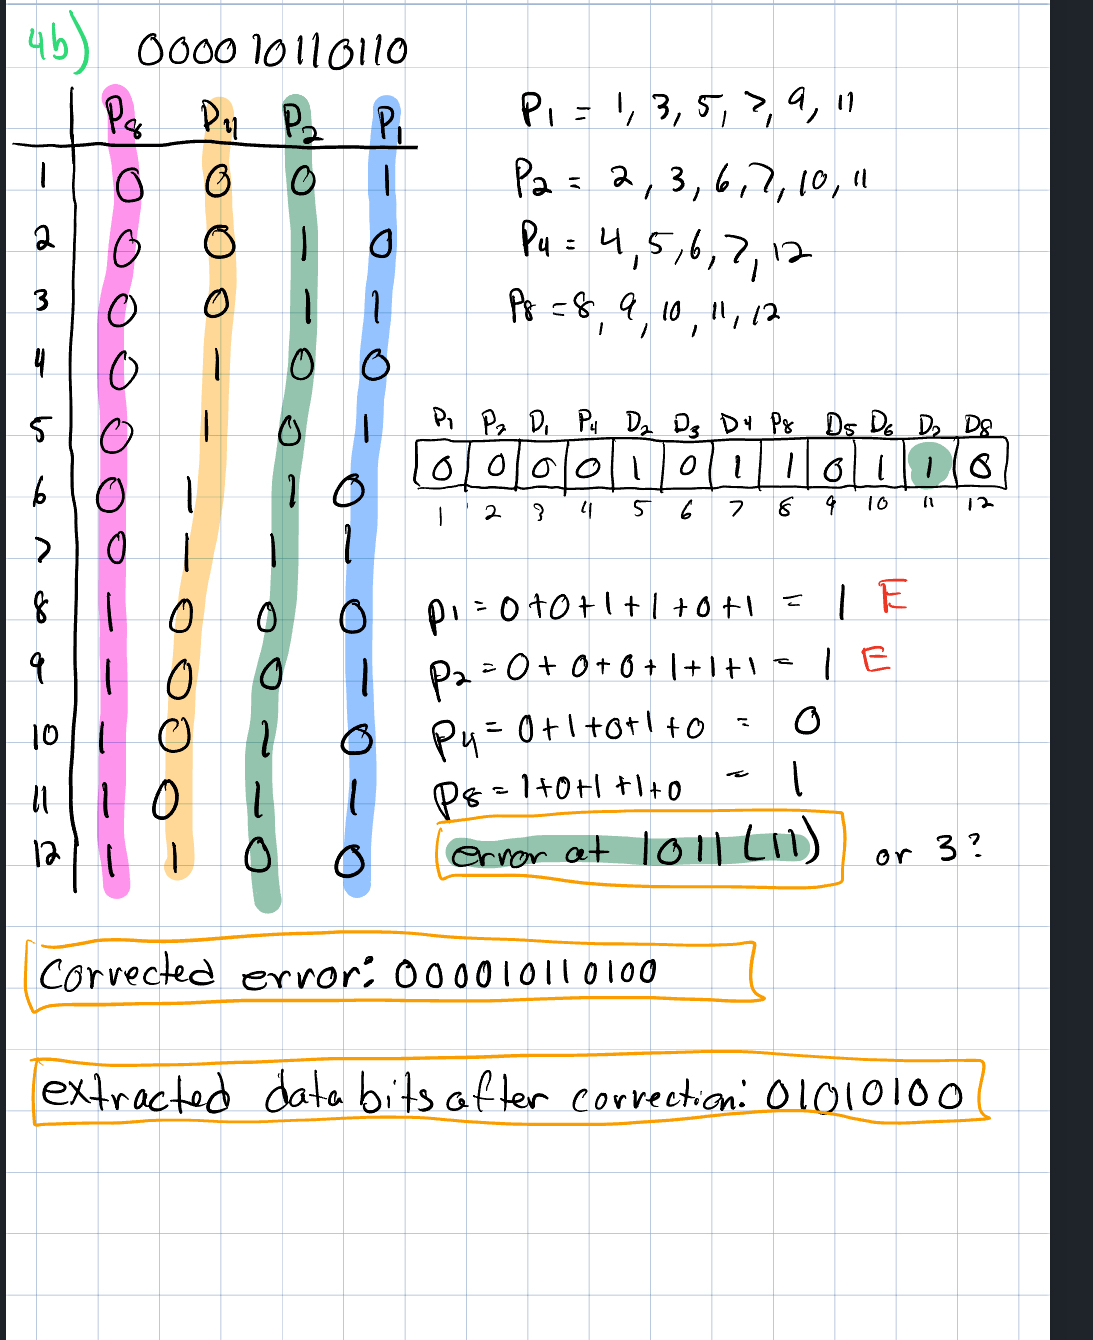 4b) 000010110110
P8 P4 P2 P1
1 0 0 0 1
2 0 0 1 0
3 0 0 1 1
4 0 1 0 0
5 0 1 0 1
6 0 1 1 0
7 0 1 1 1
8 1 0 0 0
9 1 0 0 1
10 1 0 1 0
11 1 0 1 1
12 1 1 0 0
P1 = 1, 3, 5, 7, 9, 11
P2 = 2, 3, 6, 7, 10, 11
P4 = 4, 5, 6, 7, 12
P8 = 8, 9, 10, 11, 12
P1 P2 D1 P4 D2 D3 D4 P8 D5 D6 D7 D8
0 0 0 0 1 0 1 1 0 1 1 0
1 2 3 4 5 6 7 8 9 10 11 12
P1 = 0+0+1+1+0+1 = 1 E
P2 = 0+0+0+1+1+1 = 1 E
P4 = 0+1+0+1+0 = 0
P8 = 1+0+1+1+0 = 1
error at 1011 (11) or 3?
Corrected error: 000010110100
extracted data bits after correction: 01010100